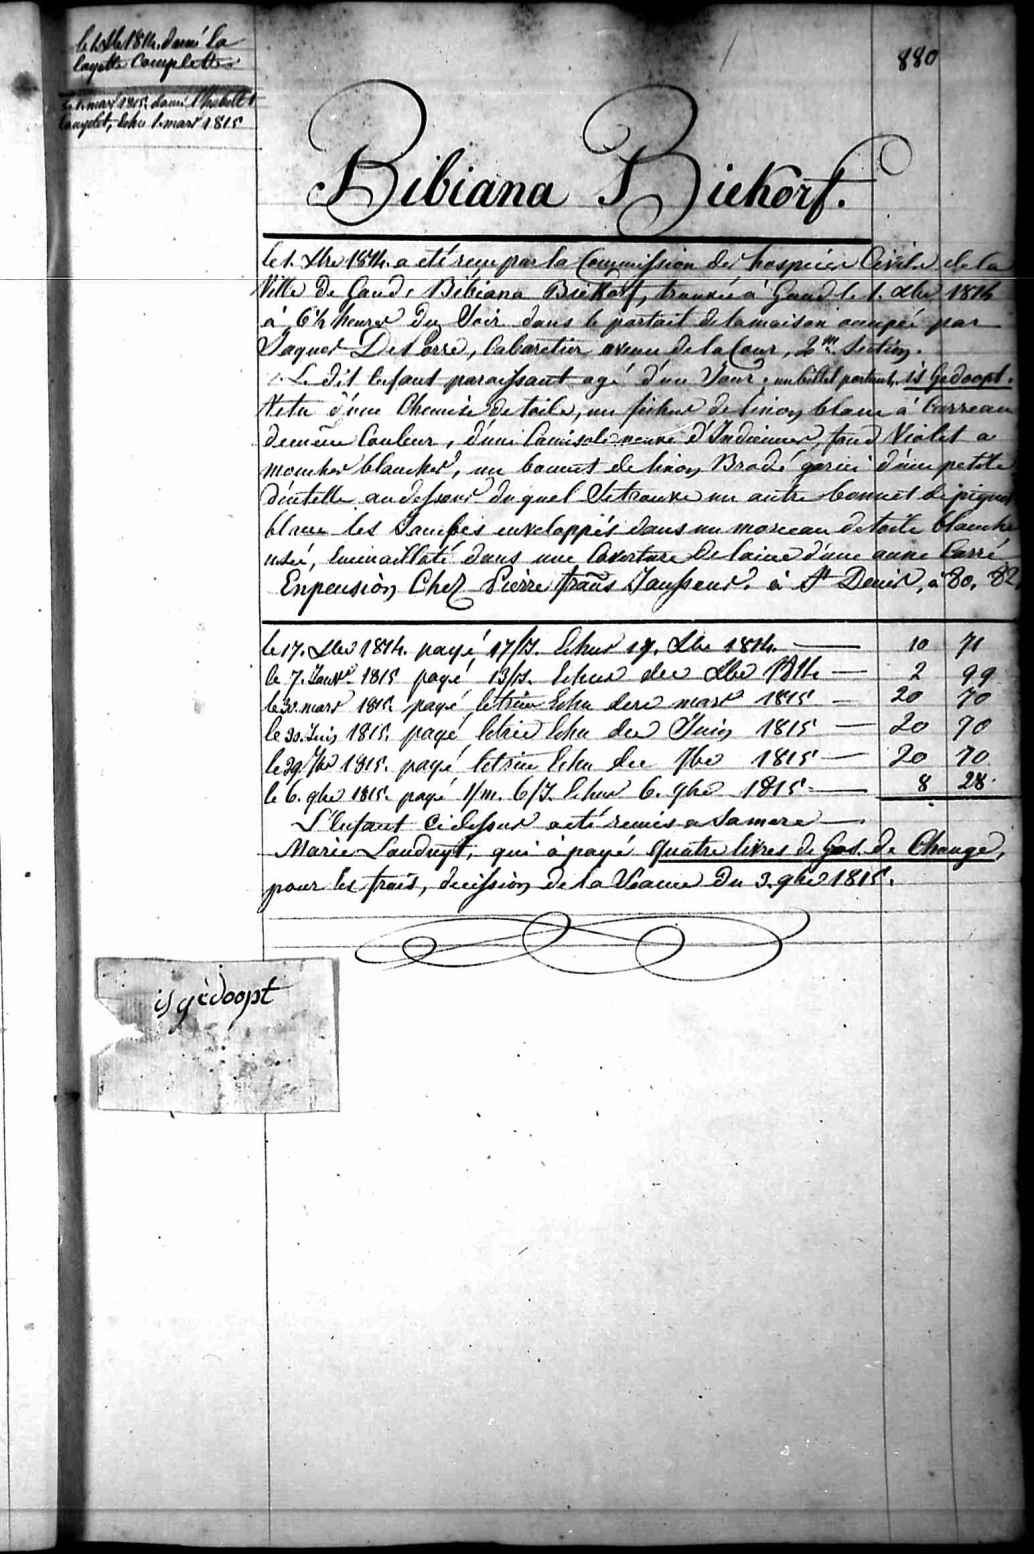 le 1. Xbre 1814. donné la
layette Complette.
le 1. mars 1815. donné
Complet, Echu 1. mars 1815
880
Bibiana Biekorf.
le 1. Xbre 1814. a eté reçu par la Commission des hospices Civils de la
Ville de Gand, Bibiana Biekorf, trouvée à Gand le 1. Xbre 1814
à 6½ heures du Soir dans le portail de la maison occupée par
Jaques De Corre, Cabaretier, avenu de la Cour, 2me Section.
Le dit Enfant paraissant agé d'un Jour, un billet portant, is Gedoopt.
Vetu d'une Chemise de toile, un fichu de linon blanc à Carreau
de même Couleur, d'une Camisole neuve d'Indienne, fond Violet a
mouches blanches, un bonnet de linon Brodé garni d'une petite
dentelle au dessous du quel Se trouve un autre bonnet de
blanc les Jambes enveloppés dans un morceau de toile blanche
usée, Emmaillaté dans une Coverture de laine d'une aune Carré
En pension Chez Pierre frans Jansseus, à St. Denis, à 80, 82
le 17. Xbre 1814. payé 17/J. Echus 17. Xbre 1814. 10 71
le 7. Janvr. 1815 payé 13/J. Echus der Xbre 1814 2 99
le 30. mars 1815. payé, le trim Echu der mars 1815 20 70
le 30. Juin 1815. payé, le trim Echu der Juin 1815 20 70
le 29. 7bre 1815. payé le trim Echu der 7bre 1815 20 70
le 6. 9bre 1815. payé 1/m. 6/J. Echus 6. 9bre 1815. 8 28.
L'Enfant Ci dessus a eté remis a Sa mere
Marie Landuyt, qui a payé quatre livres de Gros de Change,
pour les frais, decission de la Séance Du 3. 9bre 1815.
is gedoopt